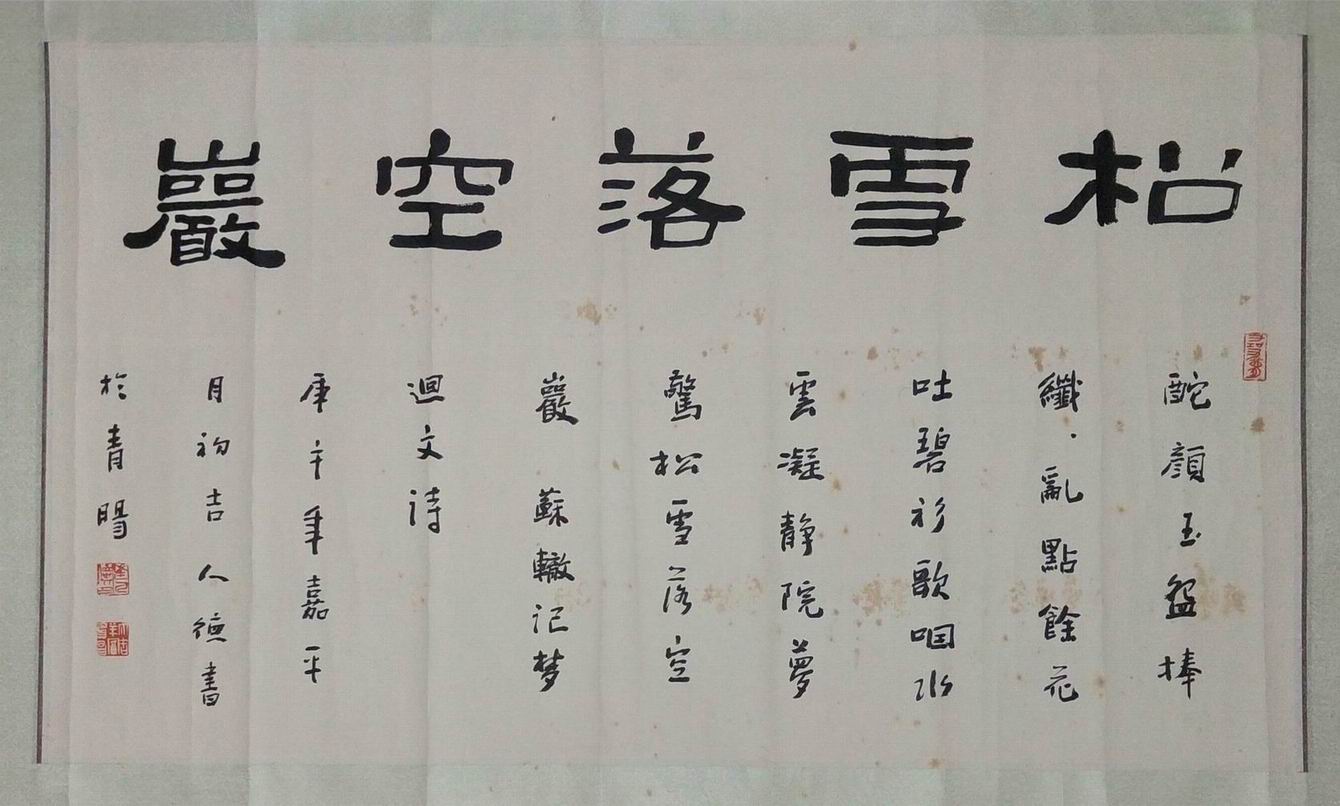 松雪落空巖
酡顏玉盌捧
纖纖亂點餘花
吐碧衫歌咽水
雲凝靜院夢
驚松雪落空
巖 蘇轍記梦
迴文詩
庚午年嘉平
月初吉人德書
於青陽